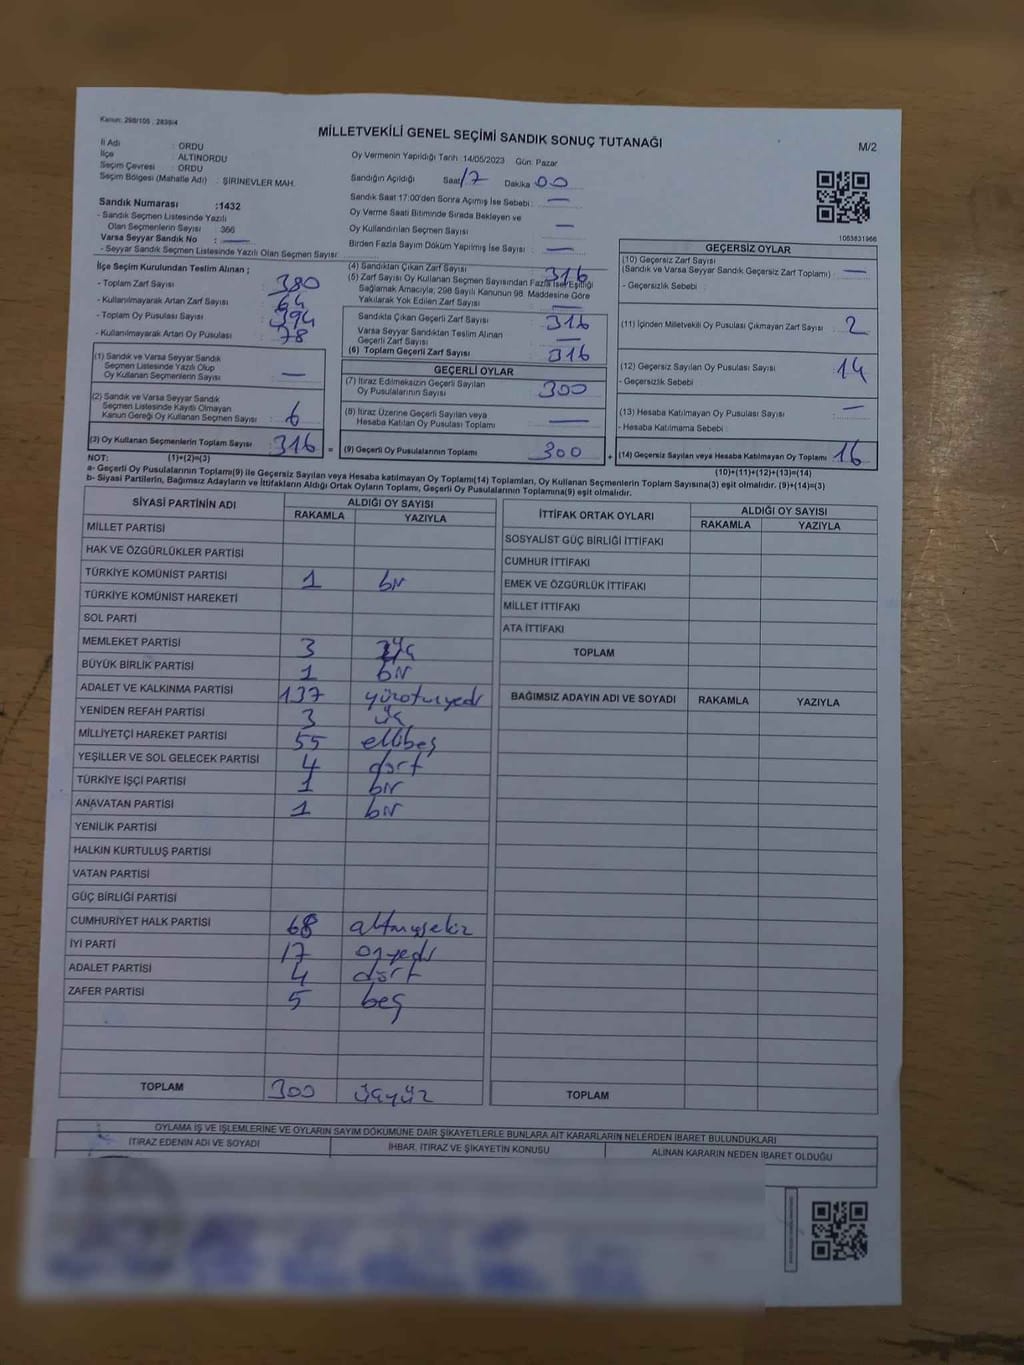 Kanun: 298/105 , 2839/4
MİLLETVEKİLİ GENEL SEÇİMİ SANDIK SONUÇ TUTANAĞI
M/2
İl Adı : ORDU
İlçe : ALTINORDU
Seçim Çevresi : ORDU
Seçim Bölgesi (Mahalle Adı) : ŞİRİNEVLER MAH.
Oy Vermenin Yapıldığı Tarih 14/05/2023 Gün: Pazar
Sandığın Açıldığı Saat 17 Dakika 00
Sandık Saat 17:00'den Sonra Açılmış İse Sebebi : —
Oy Verme Saati Bitiminde Sırada Bekleyen ve
Oy Kullandırılan Seçmen Sayısı : —
Birden Fazla Sayım Döküm Yapılmış İse Sayısı : —
Sandık Numarası :1432
- Sandık Seçmen Listesinde Yazılı
Olan Seçmenlerin Sayısı : 366
Varsa Seyyar Sandık No : —
- Seyyar Sandık Seçmen Listesinde Yazılı Olan Seçmen Sayısı
1063831966
İlçe Seçim Kurulundan Teslim Alınan ;
- Toplam Zarf Sayısı : 380
- Kullanılmayarak Artan Zarf Sayısı : 64
- Toplam Oy Pusulası Sayısı : 394
- Kullanılmayarak Artan Oy Pusulası : 78
(1) Sandık ve Varsa Seyyar Sandık
Seçmen Listesinde Yazılı Olup
Oy Kullanan Seçmenlerin Sayısı : —
(2) Sandık ve Varsa Seyyar Sandık
Seçmen Listesinde Kayıtlı Olmayan
Kanun Gereği Oy Kullanan Seçmen Sayısı : 6
(3) Oy Kullanan Seçmenlerin Toplam Sayısı : 316 =
(1)+(2)=(3)
(4) Sandıktan Çıkan Zarf Sayısı : 316
(5) Zarf Sayısı Oy Kullanan Seçmen Sayısından Fazla İse, Eşitliği
Sağlamak Amacıyla; 298 Sayılı Kanunun 98. Maddesine Göre
Yakılarak Yok Edilen Zarf Sayısı : —
Sandıkta Çıkan Geçerli Zarf Sayısı : 316
Varsa Seyyar Sandıktan Teslim Alınan
Geçerli Zarf Sayısı : —
(6) Toplam Geçerli Zarf Sayısı : 316
GEÇERLİ OYLAR
(7) İtiraz Edilmeksizin Geçerli Sayılan
Oy Pusulalarının Sayısı : 300
(8) İtiraz Üzerine Geçerli Sayılan veya
Hesaba Katılan Oy Pusulası Toplamı : —
(9) Geçerli Oy Pusulalarının Toplamı : 300 +
GEÇERSİZ OYLAR
(10) Geçersiz Zarf Sayısı
(Sandık ve Varsa Seyyar Sandık Geçersiz Zarf Toplamı) : —
- Geçersizlik Sebebi :
(11) İçinden Milletvekili Oy Pusulası Çıkmayan Zarf Sayısı : 2
(12) Geçersiz Sayılan Oy Pusulası Sayısı : 14
- Geçersizlik Sebebi :
(13) Hesaba Katılmayan Oy Pusulası Sayısı : —
- Hesaba Katılmama Sebebi :
(14) Geçersiz Sayılan veya Hesaba Katılmayan Oy Toplamı : 16
(10)+(11)+(12)+(13)=(14)
NOT:
a- Geçerli Oy Pusulalarının Toplamı(9) ile Geçersiz Sayılan veya Hesaba katılmayan Oy Toplamı(14) Toplamları, Oy Kullanan Seçmenlerin Toplam Sayısına(3) eşit olmalıdır. (9)+(14)=(3)
b- Siyasi Partilerin, Bağımsız Adayların ve İttifakların Aldığı Ortak Oyların Toplamı, Geçerli Oy Pusulalarının Toplamına(9) eşit olmalıdır.
SİYASİ PARTİNİN ADI ALDIĞI OY SAYISI
RAKAMLA YAZIYLA
MİLLET PARTİSİ
HAK VE ÖZGÜRLÜKLER PARTİSİ
TÜRKİYE KOMÜNİST PARTİSİ 1 bir
TÜRKİYE KOMÜNİST HAREKETİ
SOL PARTİ
MEMLEKET PARTİSİ 3 üç
BÜYÜK BİRLİK PARTİSİ 1 bir
ADALET VE KALKINMA PARTİSİ 137 yüzotuzyedi
YENİDEN REFAH PARTİSİ 3 üç
MİLLİYETÇİ HAREKET PARTİSİ 55 ellibeş
YEŞİLLER VE SOL GELECEK PARTİSİ 4 dört
TÜRKİYE İŞÇİ PARTİSİ 1 bir
ANAVATAN PARTİSİ 1 bir
YENİLİK PARTİSİ
HALKIN KURTULUŞ PARTİSİ
VATAN PARTİSİ
GÜÇ BİRLİĞİ PARTİSİ
CUMHURİYET HALK PARTİSİ 68 altmışsekiz
İYİ PARTİ 17 onyedi
ADALET PARTİSİ 4 dört
ZAFER PARTİSİ 5 beş
TOPLAM 300 üçyüz
İTTİFAK ORTAK OYLARI ALDIĞI OY SAYISI
RAKAMLA YAZIYLA
SOSYALİST GÜÇ BİRLİĞİ İTTİFAKI
CUMHUR İTTİFAKI
EMEK VE ÖZGÜRLÜK İTTİFAKI
MİLLET İTTİFAKI
ATA İTTİFAKI
TOPLAM
BAĞIMSIZ ADAYIN ADI VE SOYADI RAKAMLA YAZIYLA
TOPLAM
OYLAMA İŞ VE İŞLEMLERİNE VE OYLARIN SAYIM DÖKÜMÜNE DAİR ŞİKAYETLERLE BUNLARA AİT KARARLARIN NELERDEN İBARET BULUNDUKLARI
İTİRAZ EDENİN ADI VE SOYADI İHBAR, İTİRAZ VE ŞİKAYETİN KONUSU ALINAN KARARIN NEDEN İBARET OLDUĞU